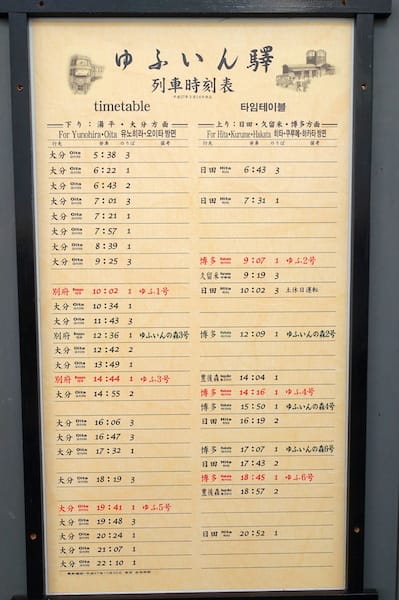 ゆふいん驛
列車時刻表
timetable 타임테이블
下り：湯平・大分方面 上り：日田・久留米・博多方面
For Yunohira・Oita 유노히라・오이타 방면 For Hita・Kurume・Hakata 히타・쿠루메・하카타 방면
行先 発車 のりば 備考 行先 発車 のりば 備考
大分 Oita 5:38 3
大分 Oita 6:22 1 日田 Hita 6:43 3
大分 Oita 6:43 2
大分 Oita 7:01 3 日田 Hita 7:31 1
大分 Oita 7:21 1
大分 Oita 7:57 1
大分 Oita 8:39 1
大分 Oita 9:25 3 博多 9:07 1 ゆふ2号
久留米 9:19 3
別府 10:02 1 ゆふ1号 日田 Hita 10:02 3 土休日運転
大分 Oita 10:34 1
大分 Oita 11:43 3
別府 12:36 1 ゆふいんの森3号 博多 12:09 1 ゆふいんの森2号
大分 Oita 12:42 2
大分 Oita 13:49 1
別府 14:44 1 ゆふ3号 豊後森 14:04 1
大分 Oita 14:55 2 博多 14:16 1 ゆふ4号
博多 15:50 1 ゆふいんの森4号
大分 Oita 16:06 3 日田 Hita 16:19 2
大分 Oita 16:47 3
大分 Oita 17:32 1 博多 17:07 1 ゆふいんの森6号
日田 Hita 17:43 2
大分 Oita 18:19 3 博多 18:45 1 ゆふ6号
豊後森 18:57 2
大分 Oita 19:41 1 ゆふ5号
大分 Oita 19:48 3
大分 Oita 20:24 1 日田 Hita 20:52 1
大分 Oita 21:07 1
大分 Oita 22:10 1